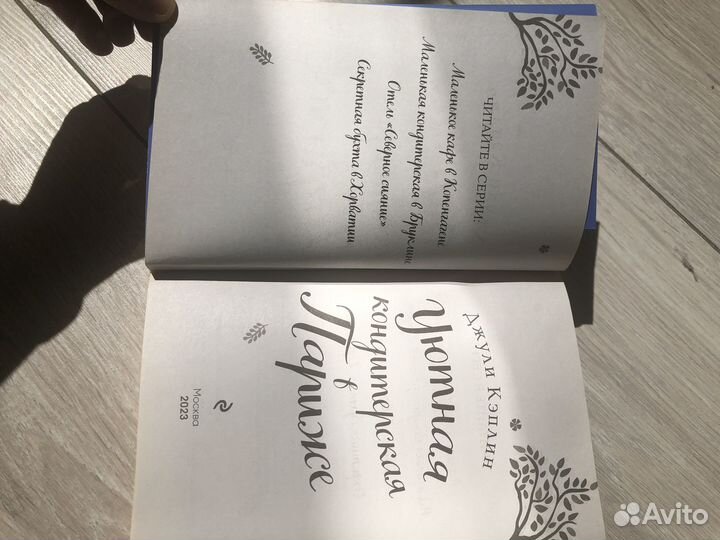 ЧИТАЙТЕ В СЕРИИ:
Маленькое кафе в Копенгагене
Маленькая кондитерская в Бруклине
Отель «Северное сияние»
Секретная бухта в Хорватии
ДЖУЛИ КЭПЛИН
Уютная
кондитерская
в
Париже
МОСКВА
2023
Avito